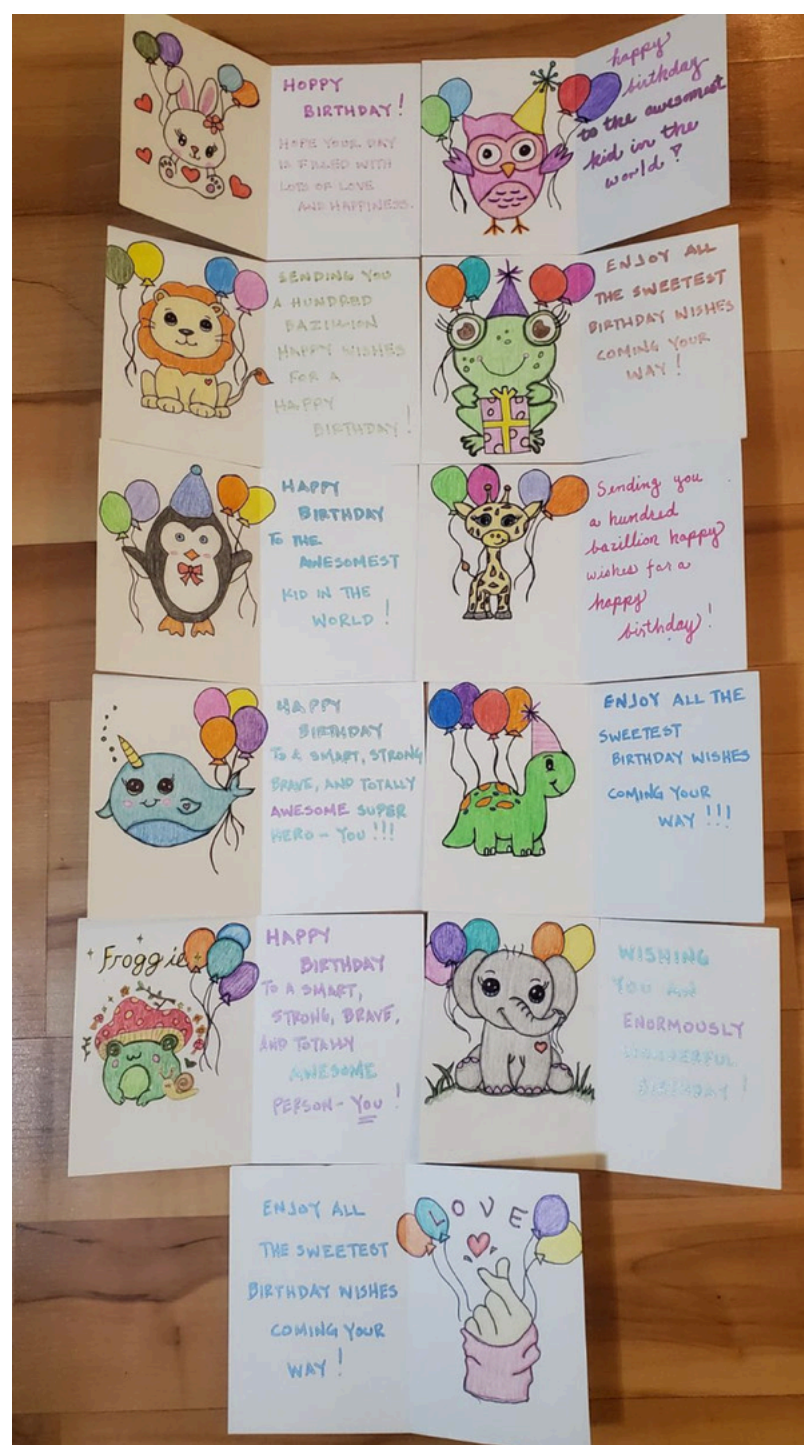 HOPPY
BIRTHDAY!
HOPE YOUR DAY
IS FILLED WITH
LOTS OF LOVE
AND HAPPINESS.
happy
birthday
to the awesomest
kid in the
world!
SENDING YOU
A HUNDRED
BAZILLION
HAPPY WISHES
FOR A
HAPPY
BIRTHDAY!
ENJOY ALL
THE SWEETEST
BIRTHDAY WISHES
COMING YOUR
WAY!
HAPPY
BIRTHDAY
TO THE
AWESOMEST
KID IN THE
WORLD!
Sending you
a hundred
bazillion happy
wishes for a
happy
birthday!
HAPPY
BIRTHDAY
TO A SMART, STRONG
BRAVE, AND TOTALLY
AWESOME SUPER
HERO - YOU!!!
ENJOY ALL THE
SWEETEST
BIRTHDAY WISHES
COMING YOUR
WAY!!!
Froggie
HAPPY
BIRTHDAY
TO A SMART,
STRONG, BRAVE,
AND TOTALLY
AWESOME
PERSON - YOU!
WISHING
YOU AN
ENORMOUSLY
WONDERFUL
BIRTHDAY!
ENJOY ALL
THE SWEETEST
BIRTHDAY WISHES
COMING YOUR
WAY!
LOVE